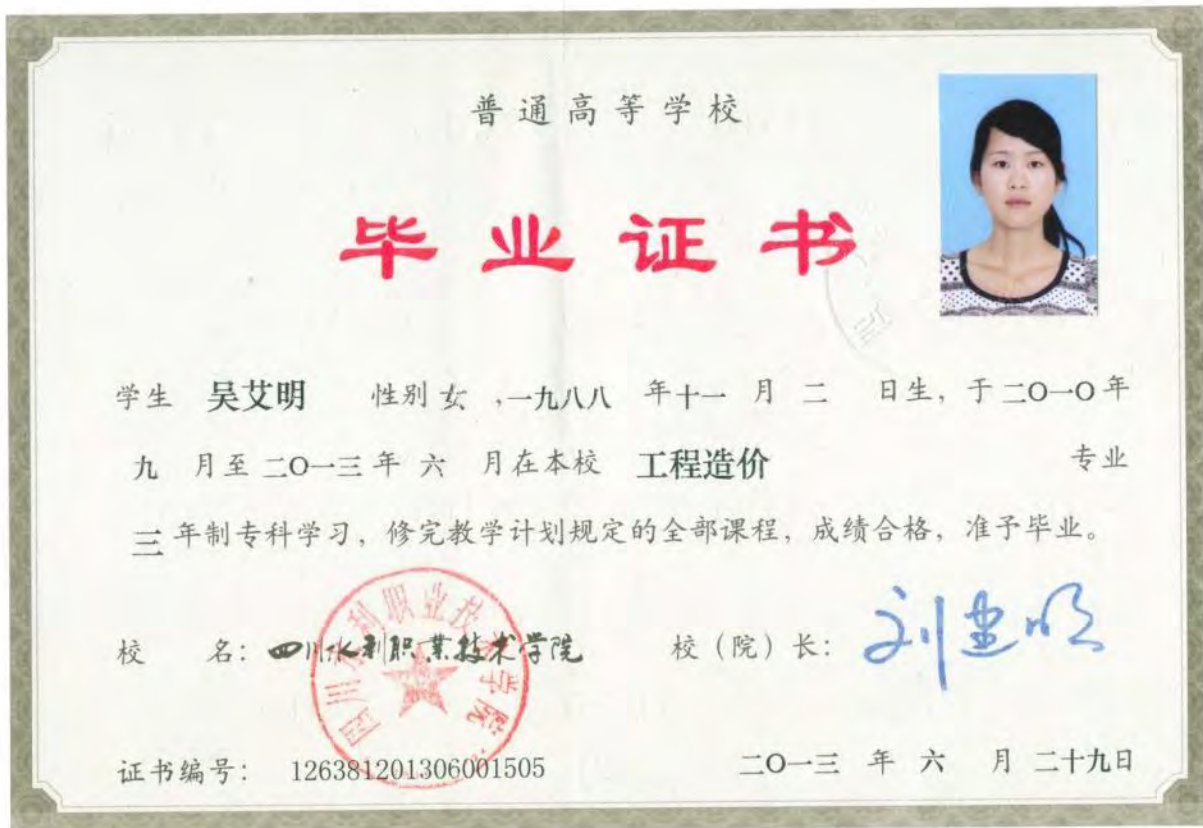 普通高等学校
毕业证书
学生 吴艾明 性别 女 ,一九八八 年 十一 月 二 日生, 于 二〇一〇 年
九 月至 二〇一三 年 六 月在本校 工程造价 专业
三 年制专科学习, 修完教学计划规定的全部课程, 成绩合格, 准予毕业。
校 名: 四川水利职业技术学院 校(院)长: 刘建明
四川水利职业技术学院
证书编号: 126381201306001505 二〇一三 年 六 月 二十九日